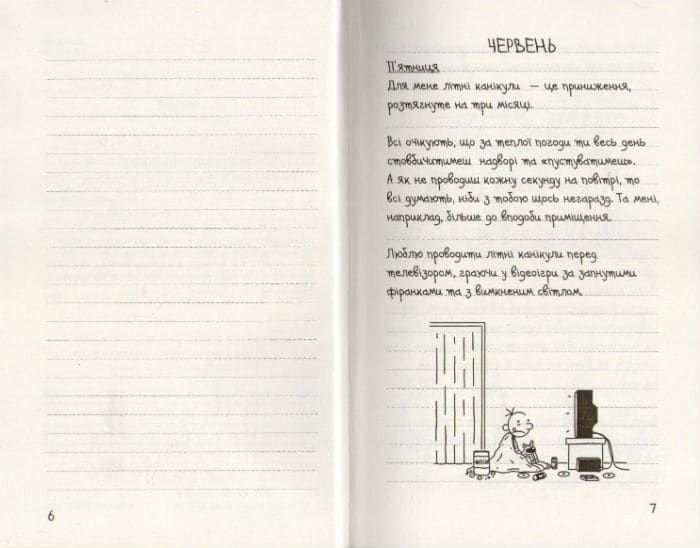 ЧЕРВЕНЬ
П'ятниця
Для мене літні канікули — це приниження,
розтягнуте на три місяці.
Всі очікують, що за теплої погоди ти весь день
стовбичитимеш надворі та «пустуватимеш».
А як не проводиш кожну секунду на повітрі, то
всі думають, ніби з тобою щось негаразд. Та мені,
наприклад, більше до вподоби приміщення.
Люблю проводити літні канікули перед
телевізором, граючи у відеоігри за запнутими
фіранками та з вимкненим світлом.
6
7